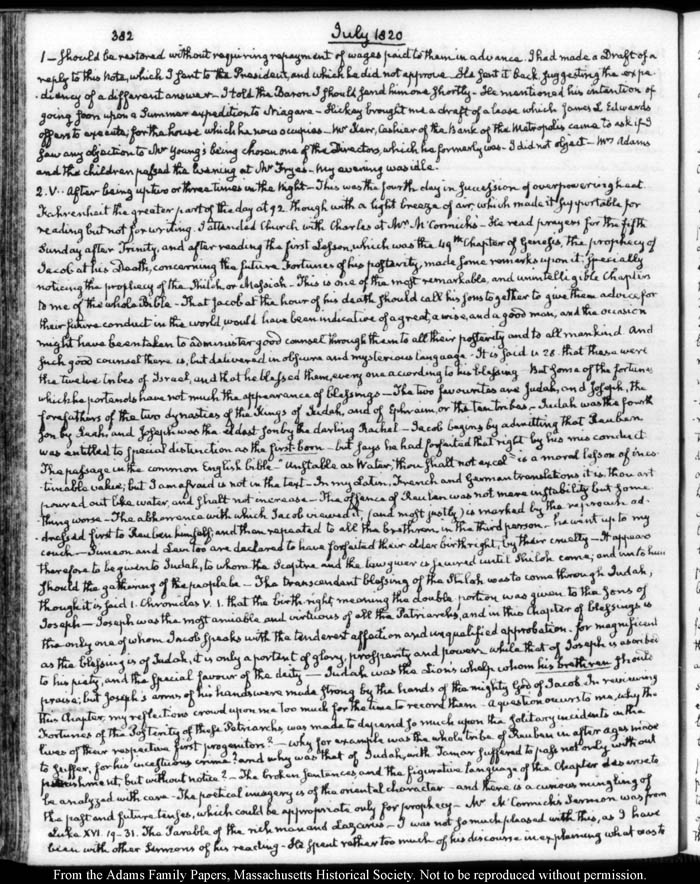 382 July 1820
1 — Should be restored without requiring repayment of wages paid to them in advance. I had made a Draft of a
reply to this Note, which I sent to the President, and which he did not approve. He sent it back suggesting the expe-
diency of a different answer — I told the Baron I should send him one shortly — He mentioned his intention of
going soon upon a Summer expedition to Niagara — Hickey brought me a draft of a lease which James L. Edwards
offers to execute, for the house which he now occupies — Mr Kerr, Cashier of the Bank of the Metropolis came to ask if I
saw any objection to Mr Young's being chosen one of the Directors, which he formerly was — I did not object — Mrs Adams
and the children passed the Evening at Mr Fryes — my evening was idle.
2. V.. After being up two or three times in the Night — This was the fourth day in succession of overpowering heat
Fahrenheit the greater part of the day at 92 though with a light breeze of air, which made it supportable for
reading but not for writing. I attended Church with Charles at Mr McCormick's — He read prayers for the fifth
Sunday after Trinity, and after reading the first Lesson, which was the 49th Chapter of Genesis, the prophecy of
Jacob at his Death, concerning the future Fortunes of his posterity, made some remarks upon it, specially
noticing the prophecy of the Shiloh, or Messiah — This is one of the most remarkable, and unintelligible Chapters
to me of the whole Bible — That Jacob at the hour of his death should call his sons together to give them advice for
their future conduct in the world, would have been indicative of a great, a wise, and a good man, and the occasion
might have been taken to administer good counsel through them to all their posterity and to all mankind. And
such good counsel there is, but delivered in obscure and mysterious language — It is said v. 28. that these were
the twelve tribes of Israel, and that he blessed them, every one according to his blessing — But some of the fortunes
which he portends have not much the appearance of blessings — The two favourites are Judah, and Joseph, the
forefathers of the two dynasties of the Kings of Judah, and of Ephraim, or the ten tribes — Judah was the fourth
son by Leah, and Joseph was the eldest son by the darling Rachel — Jacob begins by admitting that Reuben
was entitled to special distinction as the first-born — but says he had forfeited that right by his misconduct
The passage in the common English bible — "Unstable as Water, thou shalt not excel" is a moral lesson of ines-
timable value; but I am afraid is not in the text — In my Latin, French and German translations it is, thou art
poured out like water, and shalt not increase — The offence of Reuben was not mere instability but some
thing worse — The abhorrence with which Jacob viewed it, (and most justly) is marked by the reproach ad-
dressed first to Reuben himself, and then repeated to all the brethren in the third person — he went up to my
couch — Simeon and Levi too are declared to have forfeited their elder birthright, by their cruelty — It appears
therefore to be given to Judah, to whom the Sceptre and the law giver is secured until Shiloh come; and unto him
should the gathering of the people be — The transcendant blessing of the Shiloh was to come through Judah,
though it is said 1. Chronicles V. 1. that the birth right, meaning the double portion was given to the Sons of
Joseph — Joseph was the most amiable and virtuous of all the Patriarchs, and in this Chapter of blessings is
the only one of whom Jacob speaks with the tenderest affection and unqualified approbation. for magnificent
as the blessing is of Judah, it is only a portent of glory, prosperity and power, while that of Joseph is ascribed
to his piety, and the special favour of the deity — Judah was the Lion's whelp whom his brethren should
praise; but Joseph's arms of his hands were made strong by the hands of the mighty God of Jacob. In reviewing
this Chapter, my reflections crowd upon me too much for the time to record them — a question occurs to me, why the
Fortunes of the Posterity of these Patriarchs was made to depend so much upon the solitary incidents in the
lives of their respective first progenitors? — why for example was the whole tribe of Reuben in after ages made
to suffer, for his incestuous crime? and why was that of Judah, with Tamar suffered to pass not only without
punishment, but without notice? — The broken sentences, and the figurative language of the Chapter deserve to
be analyzed with care — The poetical imagery is of the oriental character — and there is a curious mingling of
the past and future tenses, which could be appropriate only for prophecy — Mr McCormick's Sermon was from
Luke XVI. 19-31. The Parable of the rich man and Lazarus — I was not so much pleased with this, as I have
been with other Sermons of his reading — He spent rather too much of his discourse in explaining what was to
From the Adams Family Papers, Massachusetts Historical Society. Not to be reproduced without permission.